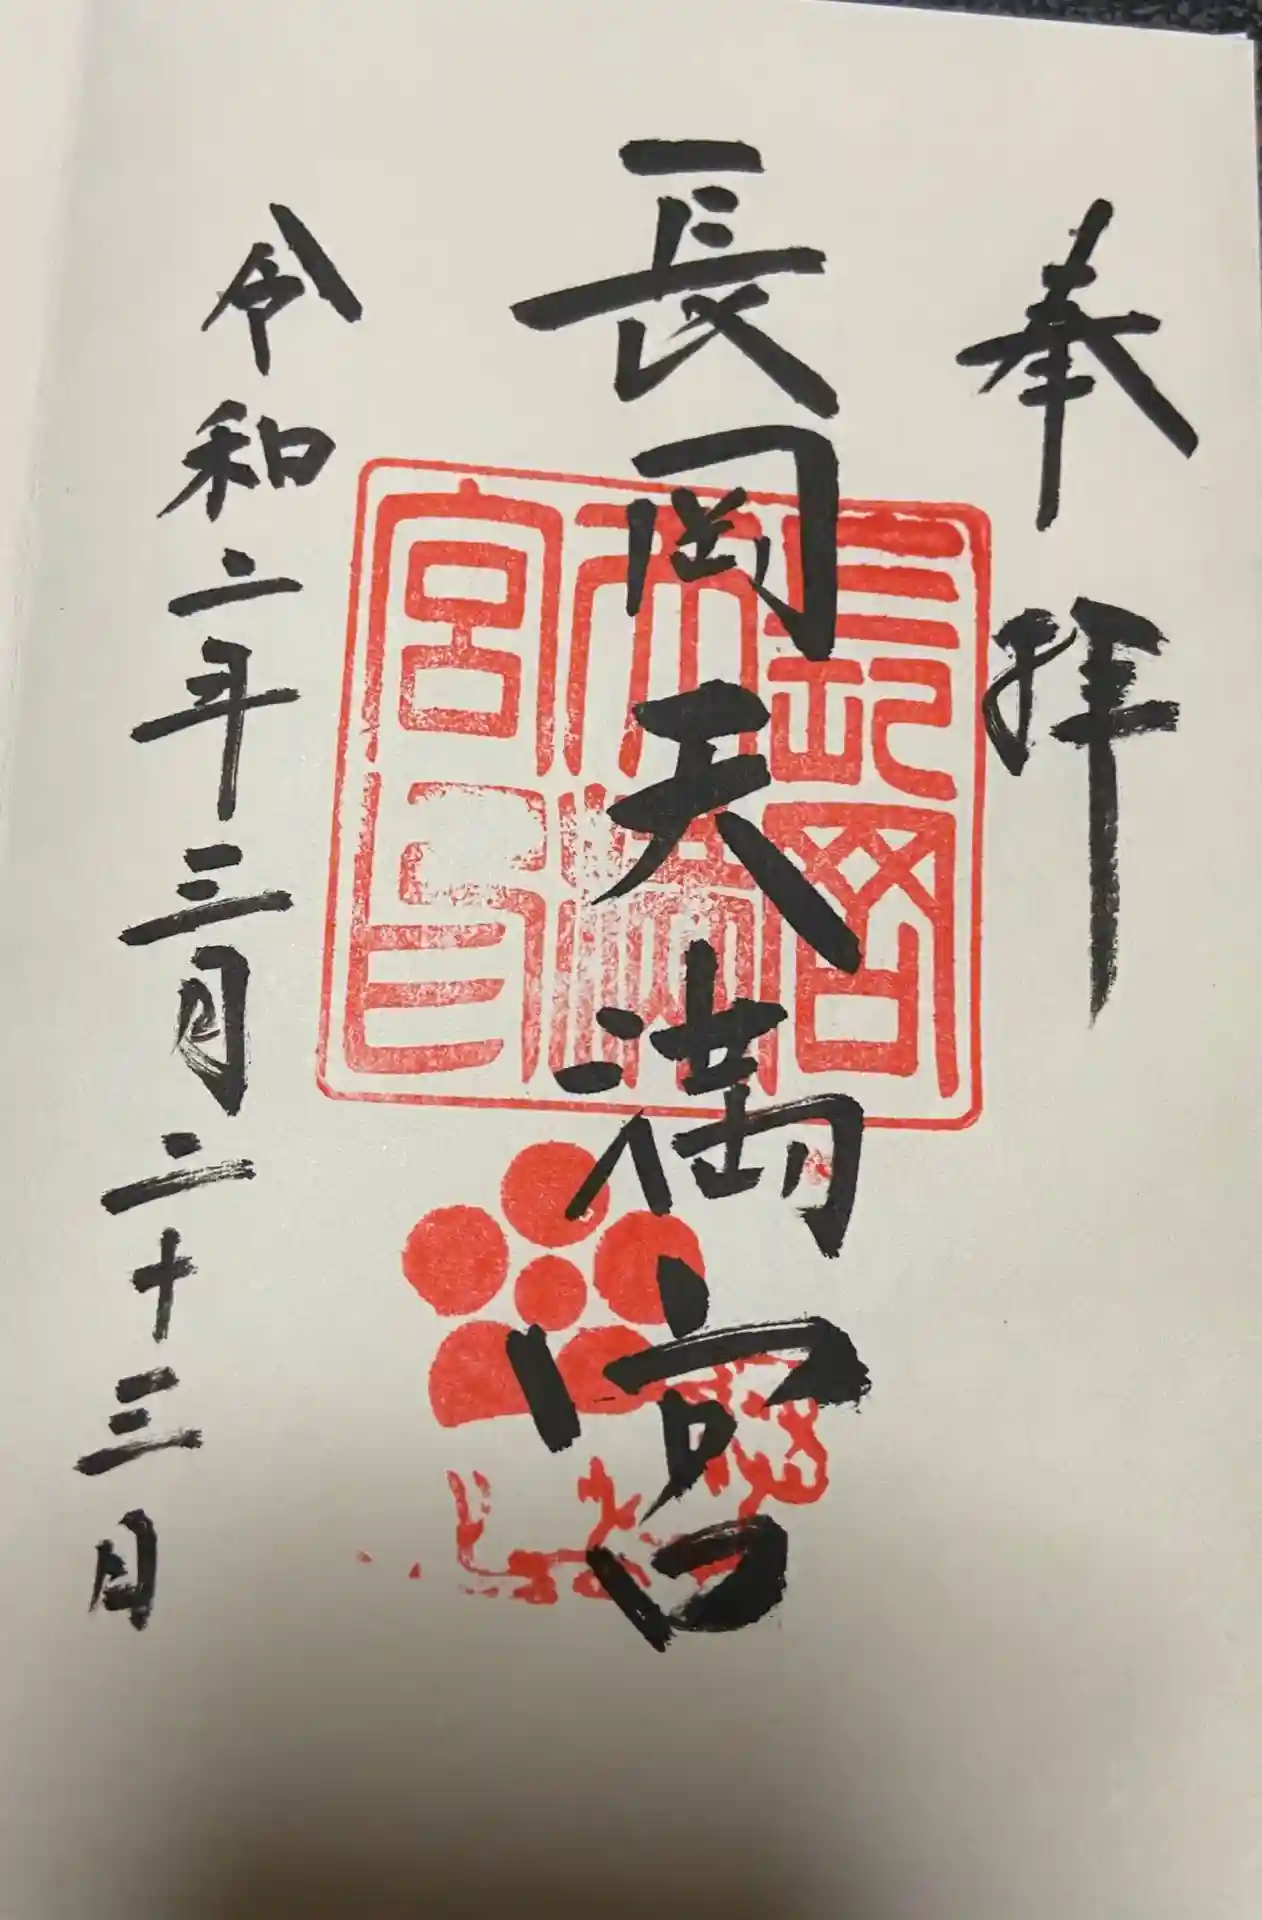 奉拝
長岡天満宮
長岡天満宮印
令和二年三月二十三日